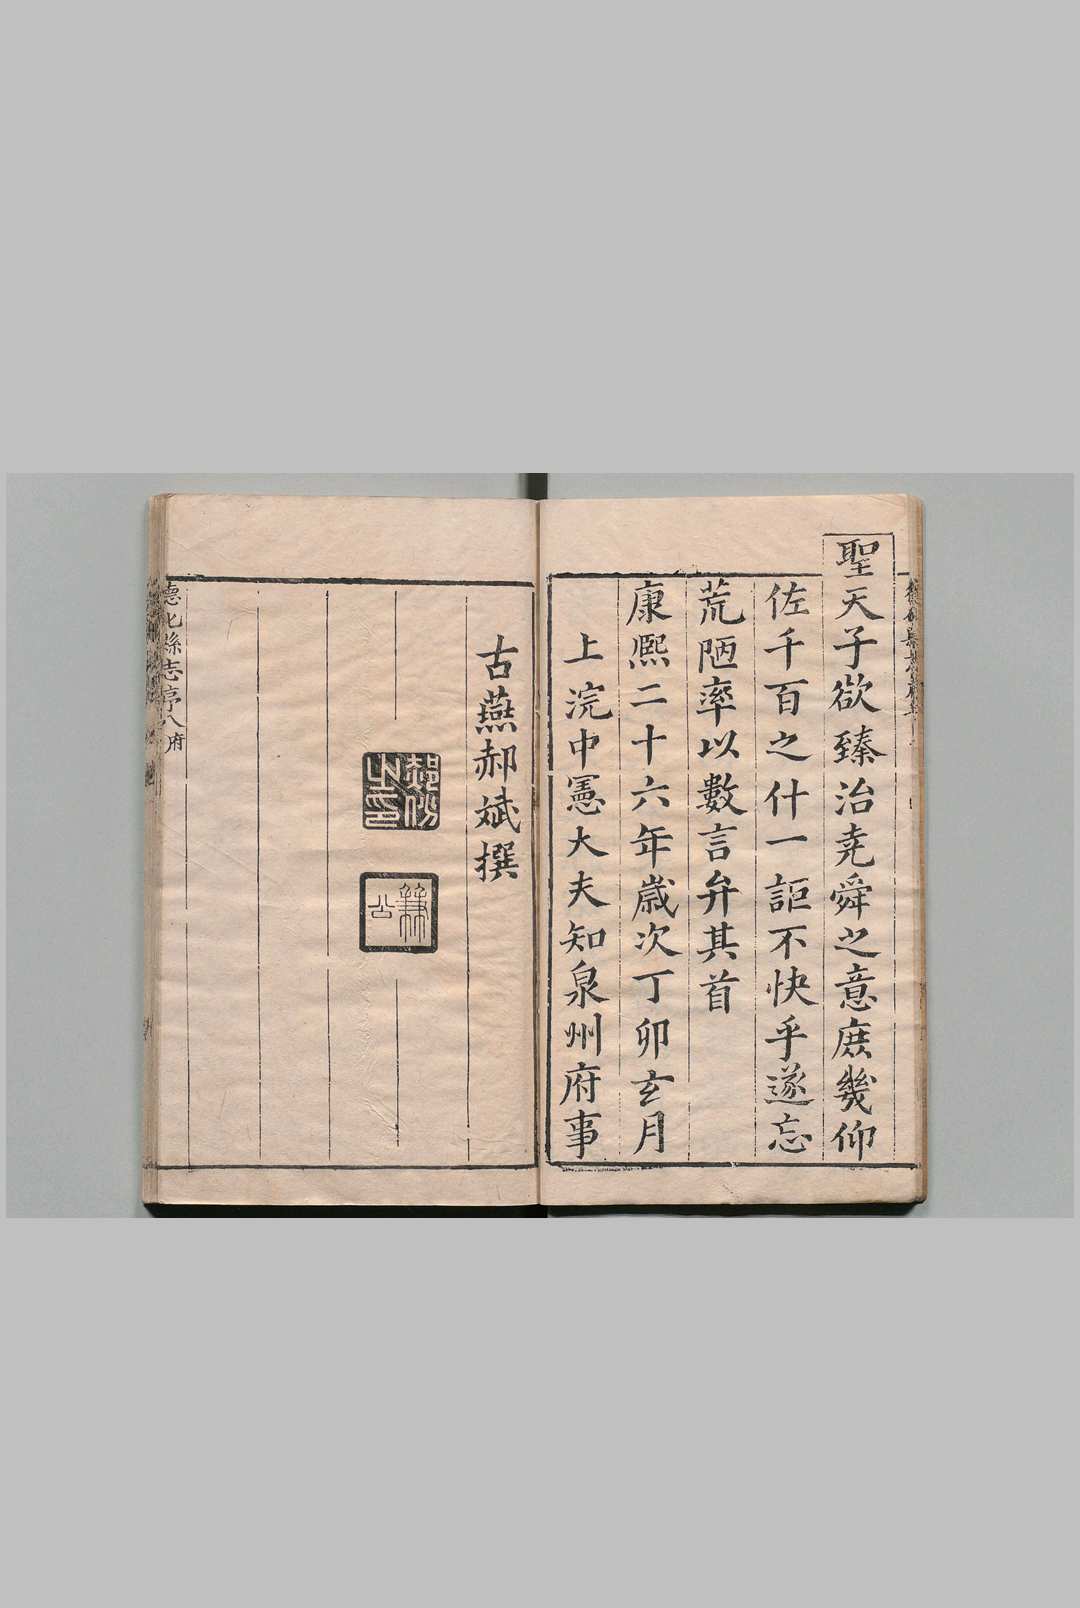 聖天子欲臻治堯舜之意庶幾仰
佐千百之什一詎不快乎遂忘
荒陋率以數言弁其首
康熙二十六年歲次丁卯玄月
上浣中憲大夫知泉州府事
古燕郝斌撰
郝份之印
兼公
德化縣志序八府